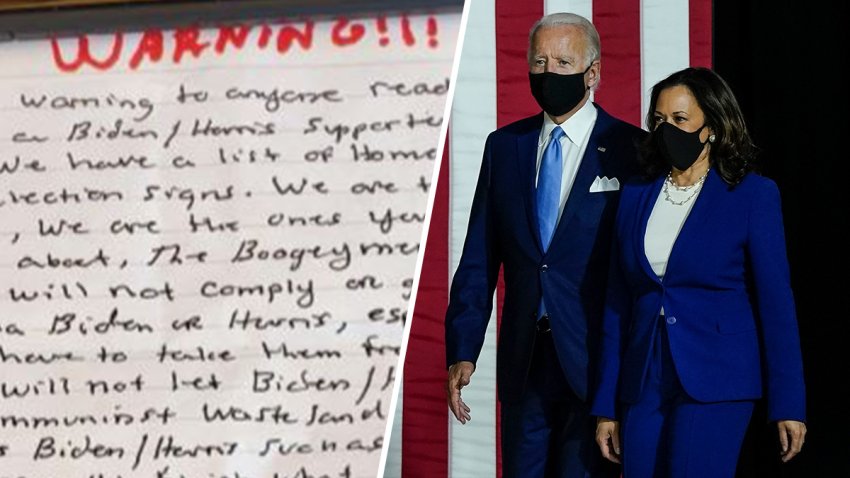 WARNING!!!
warning to anyone read
a Biden/Harris Supporte
we have a list of Home
lection signs. We are t
, we are the ones you
about, The Boogeyme
will not comply or g
a Biden or Harris, esp
have to take them fr
will not let Biden/H
mmuninst Wasteland
s Biden/Harris such as